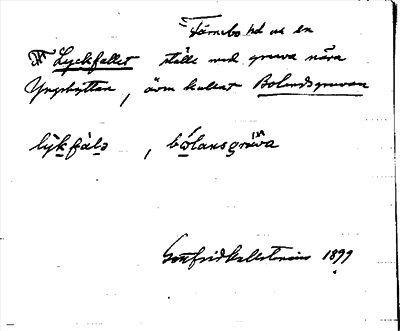 Törnebo hd us en
Lyckfallet ställe med gruva nära
Yngshyttan, även kallat Bolandsgruvan
lykfàlǝ, bωlansgrüva
Gottfrid Kallstenius 1899